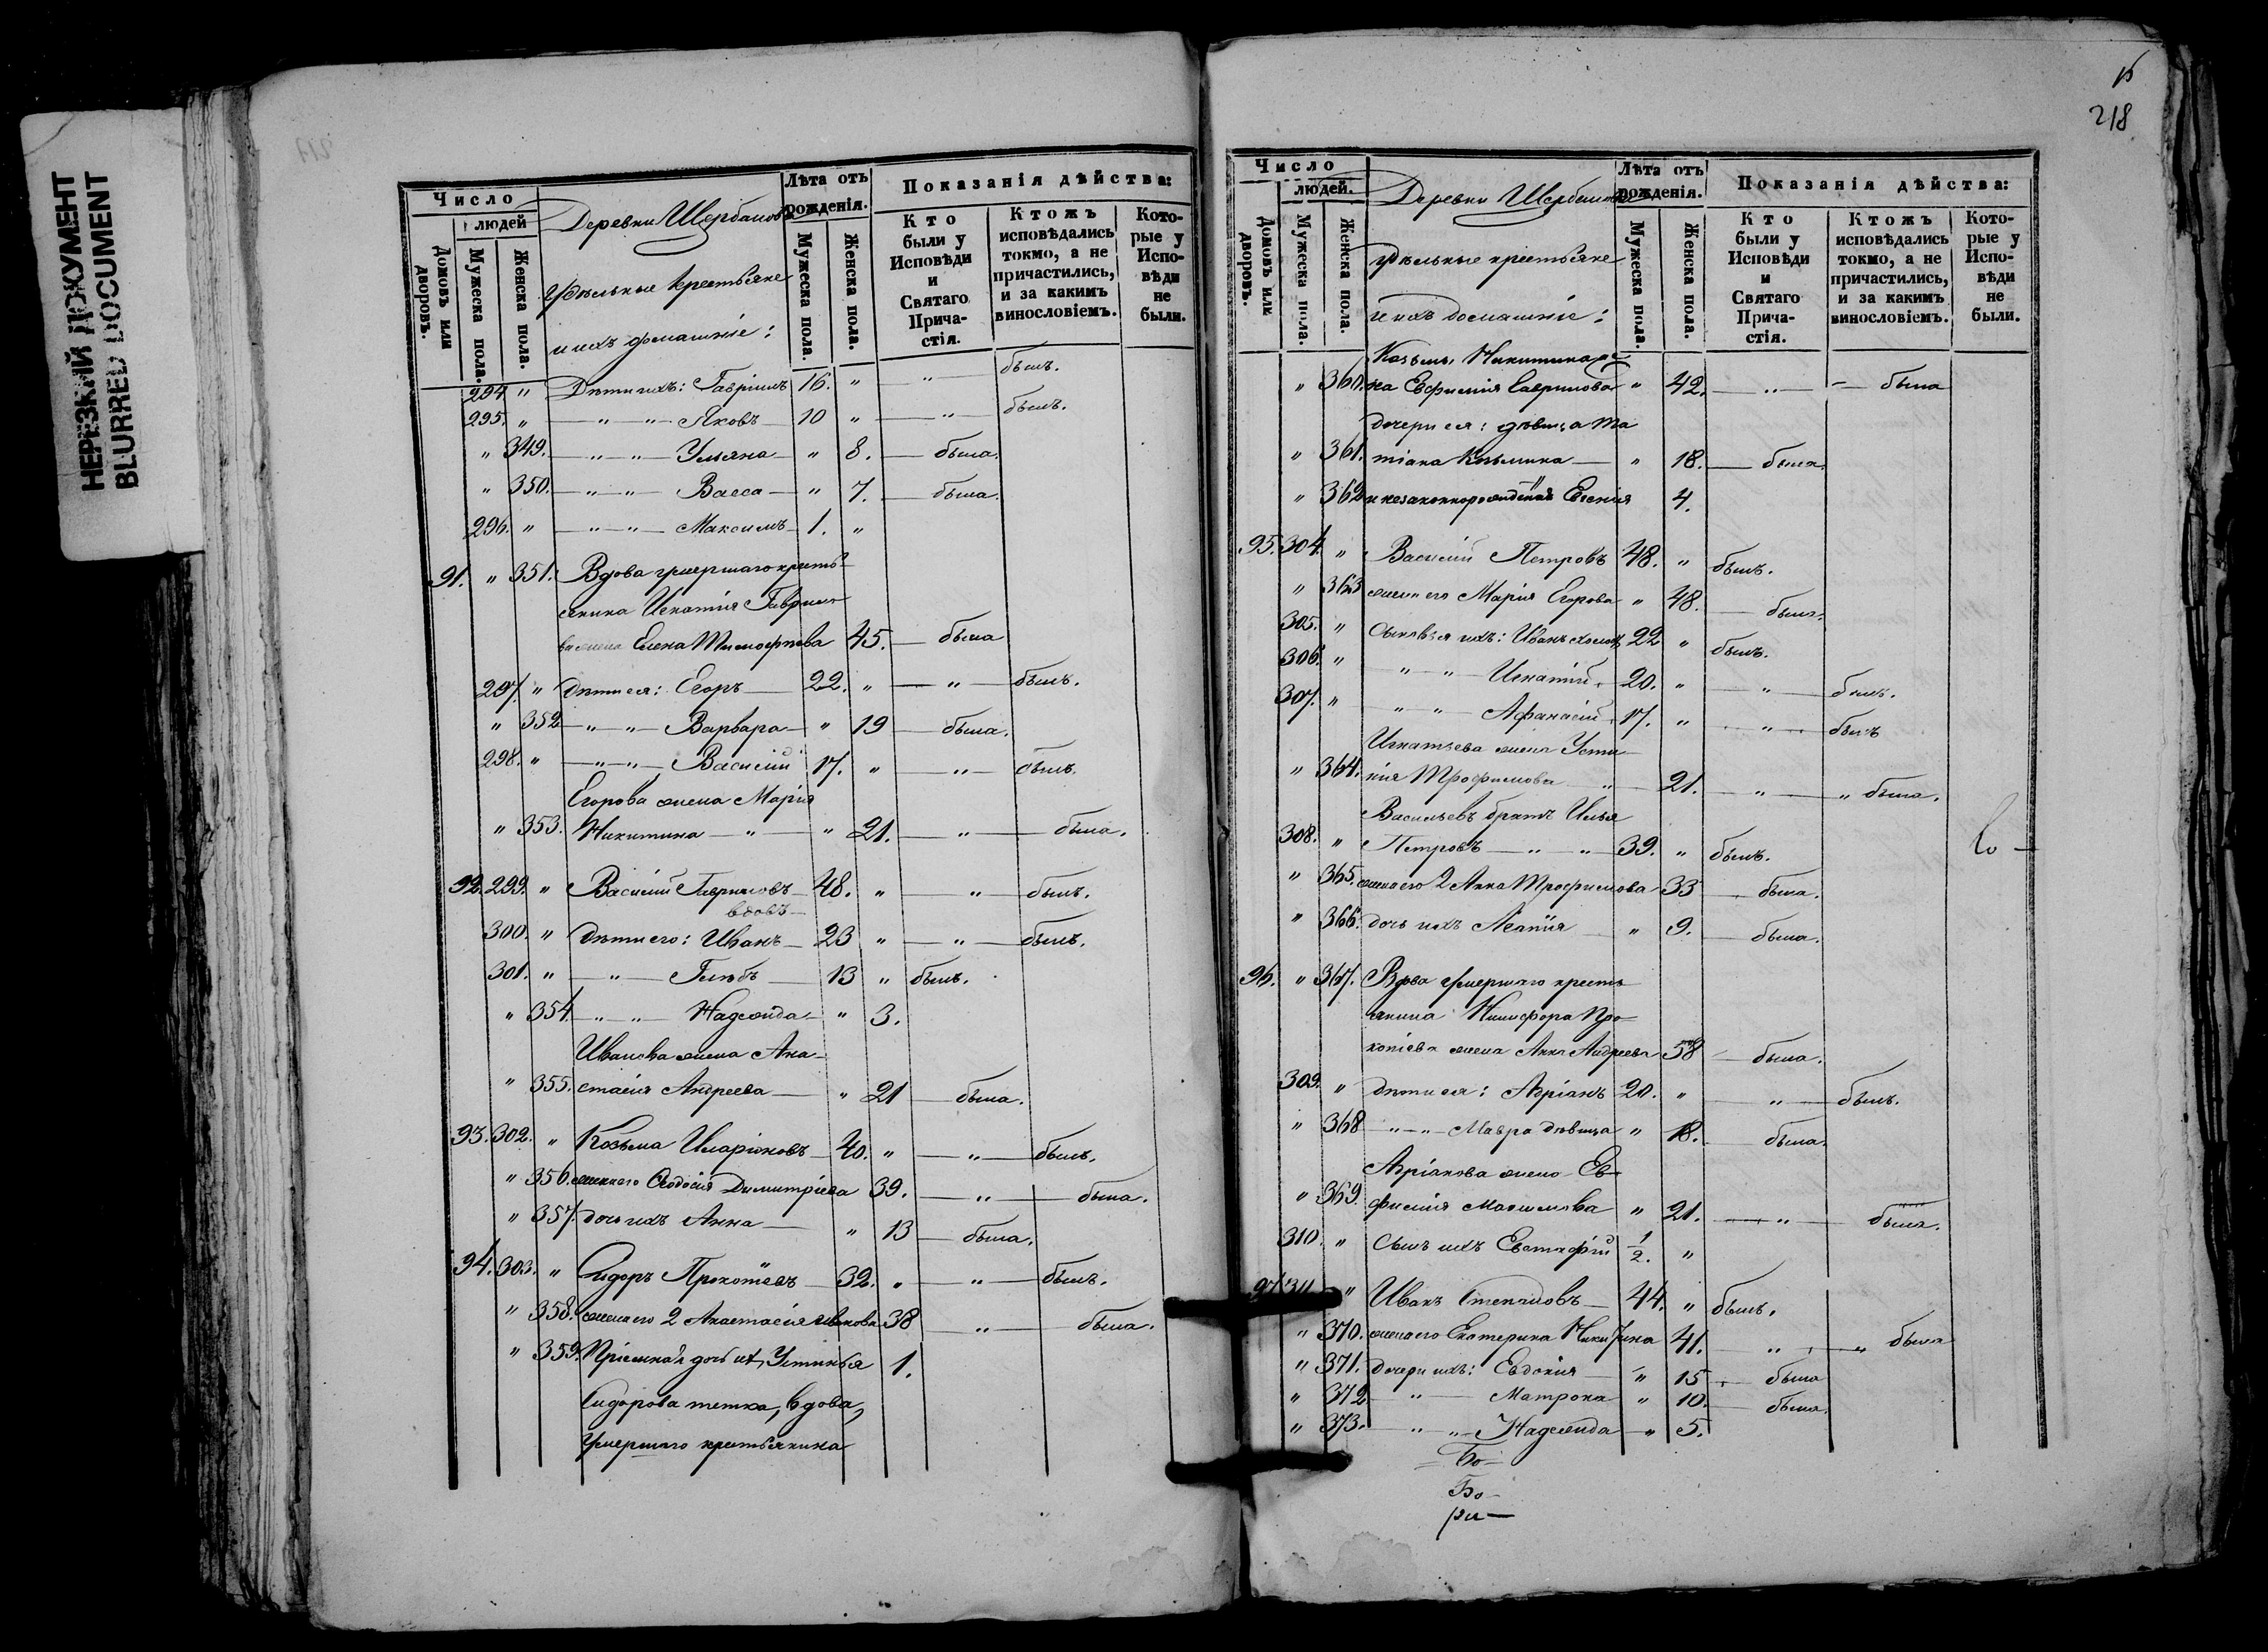 НЕРЕЗКИЙ ДОКУМЕНТ
BLURRED DOCUMENT
Число
людей
Домовъ или дворовъ.
Мужеска пола.
Женска пола.
Деревни Щербанова
Удѣльные крестьяне
и ихъ домашніе:
Лѣта отъ рожденія.
Мужеска пола.
Женска пола.
Показанія дѣйства:
Кто были у Исповѣди и Святаго Причастія.
Ктожъ исповѣдались токмо, а не причастились, и за какимъ винословіемъ.
Которые у Исповѣди не были.
294 " Дѣти ихъ: Гавріилъ 16. " " былъ.
295. " " " Яковъ 10 " " былъ.
" 349. " " Ульяна " 8. была.
" 350. " " Васса " 7. была.
296. " " " Максимъ 1. "
91. " 351. Вдова умершаго кресть-
янина Игнатія Гаврило-
ва жена Елена Тимофѣева 45. была
297. " Дѣти ея: Егоръ 22. " " былъ.
" 352 " " Варвара " 19 была.
298. " " " Василій 17. " " былъ.
Егорова жена Марія
" 353. Никитина " " 21. " была.
92. 299. " Василій Гавриловъ 48. " " былъ.
вдовъ
300. " Дѣти его: Иванъ 23 " " былъ.
301. " " Глѣбъ 13 " былъ.
" 354. " " Надежда " 3.
Иванова жена Ана-
" 355. стасія Андреева " 21 была.
93. 302. " Козьма Иларіоновъ 40. " " былъ.
" 356. жена его Ѳеодосія Димитріева 39. " была.
" 357. дочь ихъ Анна " 13 была.
94. 303. " Сидоръ Прокопіевъ 32. " " былъ.
" 358. жена его 2 Анастасія Иванова 38 " была.
" 359. Пріемная дочь их Устинья 1.
Сидорова тетка, вдова,
умершаго крестьянина
218
Число
людей.
Домовъ или дворовъ.
Мужеска пола.
Женска пола.
Деревни Щербанова
Удѣльные крестьяне
и ихъ домашніе:
Лѣта отъ рожденія.
Мужеска пола.
Женска пола.
Показанія дѣйства:
Кто были у Исповѣди и Святаго Причастія.
Ктожъ исповѣдались токмо, а не причастились, и за какимъ винословіемъ.
Которые у Исповѣди не были.
Козьмы Никитина же-
" 360. на Евфимія Гаврилова " 42. " была
дочери ея: дѣвица Та
" 361. тіана Козьмина " 18. была.
" 362 и незаконнорожденная Евгенія 4.
95. 304. " Василій Петровъ 48. " былъ.
" 363 жена его Марія Егорова " 48. была.
305. " Сыновья ихъ: Иванъ холост 22 " былъ.
306. " " " Игнатій 20. " " былъ.
307. " " " Афанасій 17. " " былъ
Игнатьева жена Усти
" 364. нія Трофимова " 21. " " была.
Васильевъ братъ Илья
308. " Петровъ " " 39. " былъ.
" 365. жена его 2 Анна Трофимова 33 была.
" 366. дочь ихъ Агапія " 9. была.
96. " 367. Вдова умершаго кресть
янина Никифора Про-
копіева жена Анна Андреева 58 была.
309. " Дѣти ея: Адріанъ 20. " " былъ.
" 368 " " Мавра дѣвица " 18. была.
Адріанова жена Ев-
" 369. фимія Максимова " 21. " была.
310. " Сынъ ихъ Евстафій 1/2. "
97. 311 " Иванъ Степановъ 44. " былъ.
" 370. жена его Екатерина Никитина 41. " " была
" 371. дочери ихъ: Евдокія " 15 была
" 372 " Матрона " 10. была.
" 373. " " Надежда " 5.
Бо-
Бо-
ри-